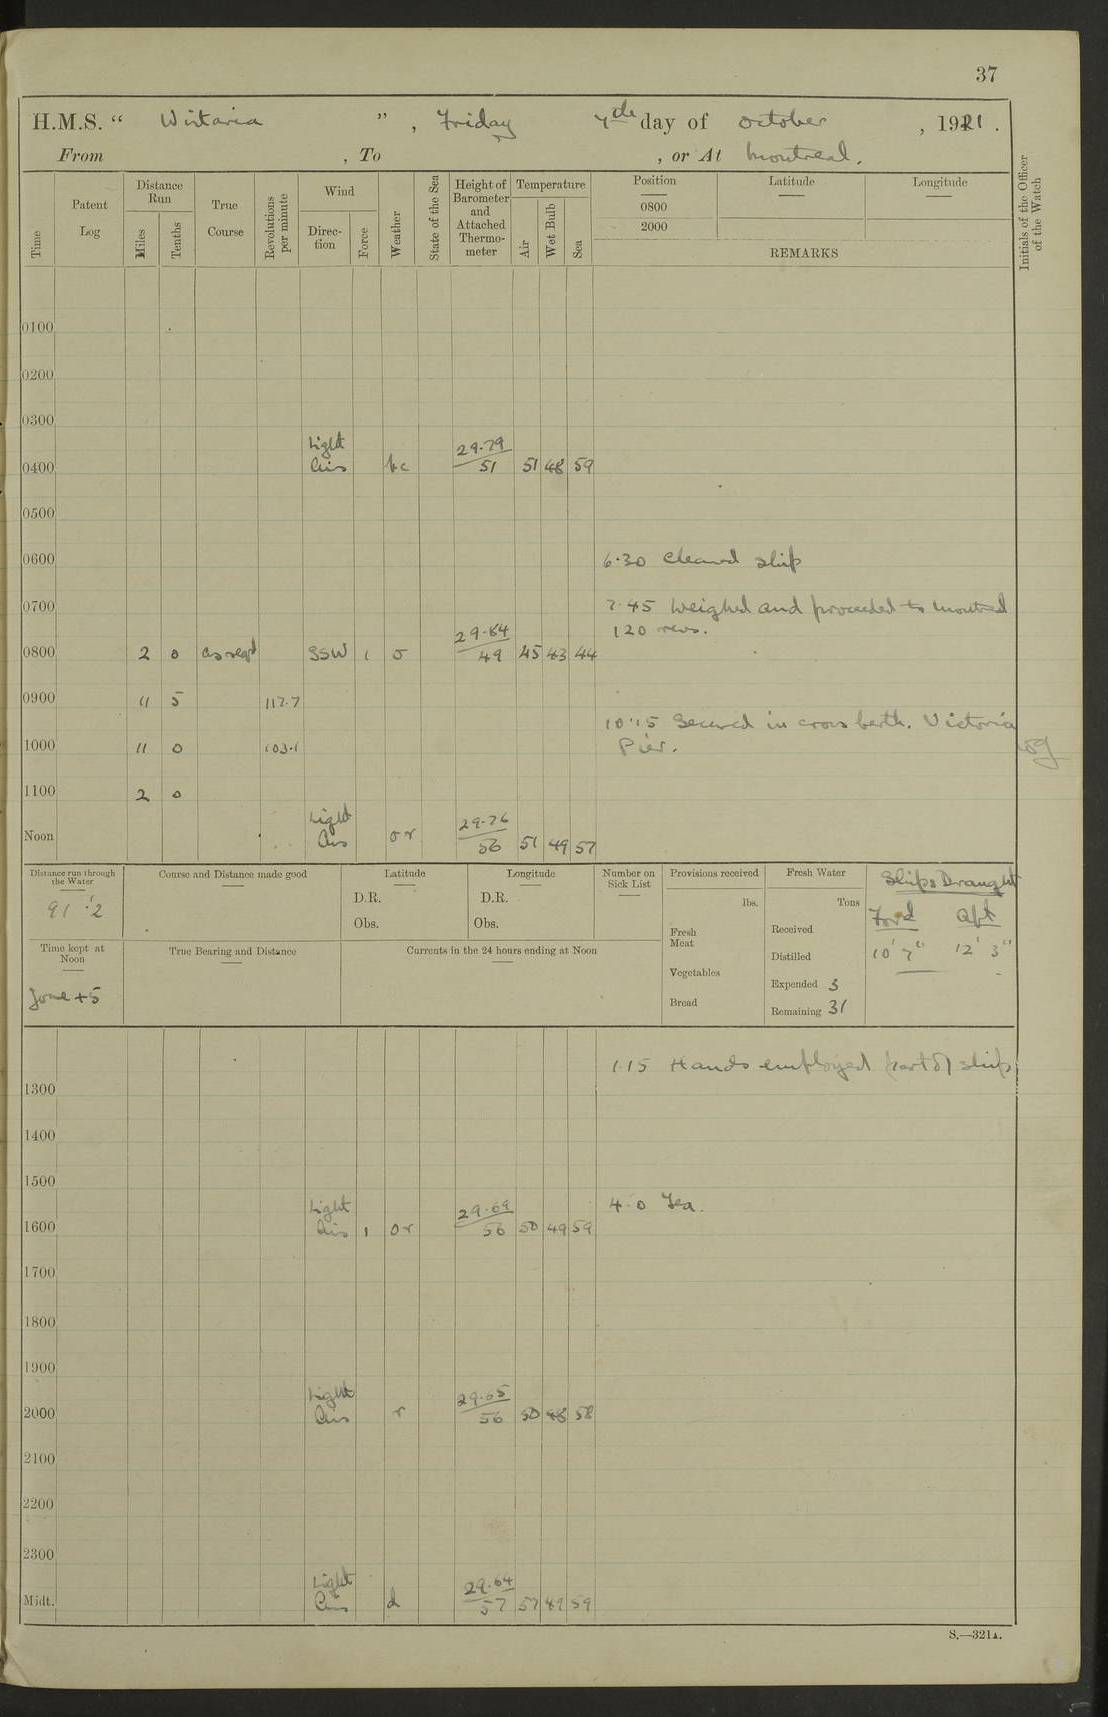 37
H.M.S. “ Wistaria ” , Friday 7th day of October , 1921 .
From , To , or At Montreal.
Time
Patent Log
Distance Run
Miles
Tenths
True Course
Revolutions per minute
Wind
Direction
Force
Weather
State of the Sea
Height of Barometer and Attached Thermometer
Temperature
Air
Wet Bulb
Sea
Position Latitude Longitude
0800
2000
REMARKS
Initials of the Officer of the Watch
0100
0200
0300
Light 29.79
0400 Airs bc 51 51 48 59
0500
0600 6.30 Cleaned ship
0700 7.45 Weighed and proceeded to Montreal
120 revs.
29.84
0800 2 0 as reqd SSW 1 o 49 45 43 44
0900 11 5 117.7
10.15 Secured in cross berth. Victoria
1000 11 0 103.1 Pier.
1100 2 0
Light 29.76
Noon Airs or 56 51 49 57
Distance run through the Water
91.2
Course and Distance made good
Latitude
D.R.
Obs.
Longitude
D.R.
Obs.
Number on Sick List
Provisions received
lbs.
Fresh Meat
Vegetables
Bread
Fresh Water
Tons
Received
Distilled
Expended 3
Remaining 31
Ships Draught
Ford Aft
10' 7" 12' 3"
Time kept at Noon
Zone +5
True Bearing and Distance
Currents in the 24 hours ending at Noon
1.15 Hands employed part of ship
1300
1400
1500
Light 29.69 4.0 Tea.
1600 Airs 1 or 56 50 49 59
1700
1800
1900
Light 29.65
2000 Airs r 56 50 48 58
2100
2200
2300
Light 29.64
Midt. Airs d 57 59
S.—321A.